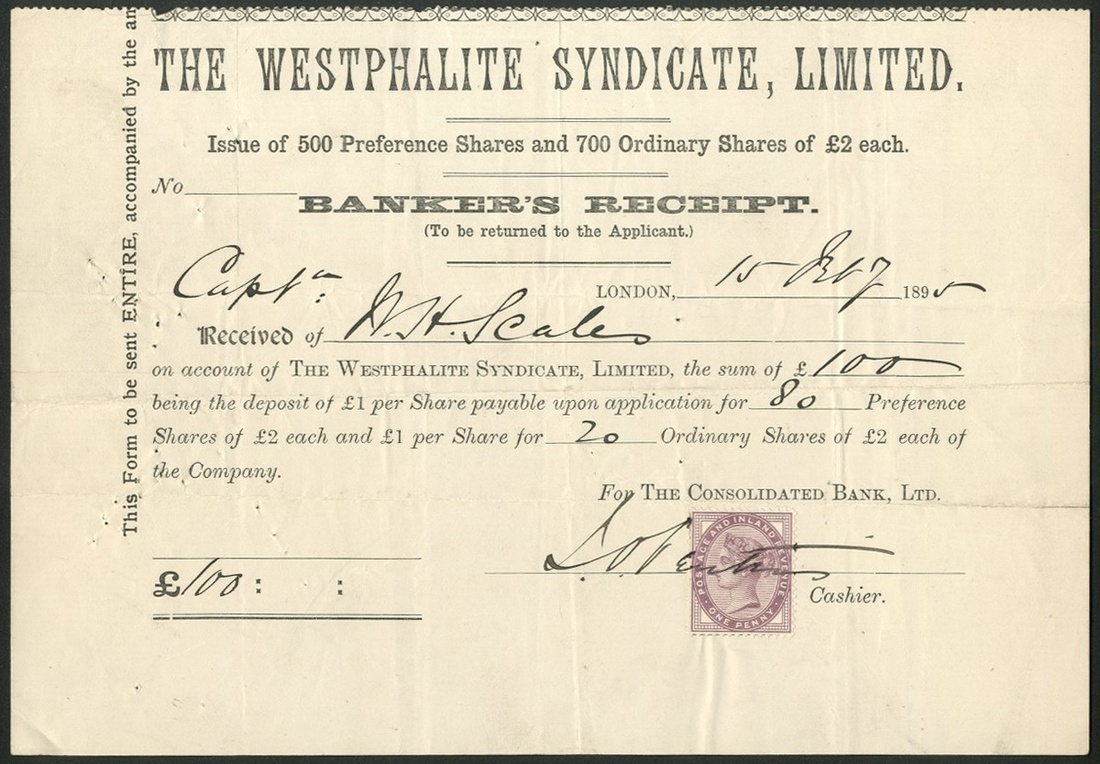 THE WESTPHALITE SYNDICATE, LIMITED.
Issue of 500 Preference Shares and 700 Ordinary Shares of £2 each.
No
BANKER'S RECEIPT.
(To be returned to the Applicant.)
LONDON, 15 Feby 1895
Captn:
Received of W. H. Scales
on account of THE WESTPHALITE SYNDICATE, LIMITED, the sum of £100
being the deposit of £1 per Share payable upon application for 80 Preference
Shares of £2 each and £1 per Share for 20 Ordinary Shares of £2 each of
the Company.
For THE CONSOLIDATED BANK, LTD.
£100 : :
Cashier.
POSTAGE AND INLAND REVENUE
ONE PENNY
This Form to be sent ENTIRE, accompanied by the